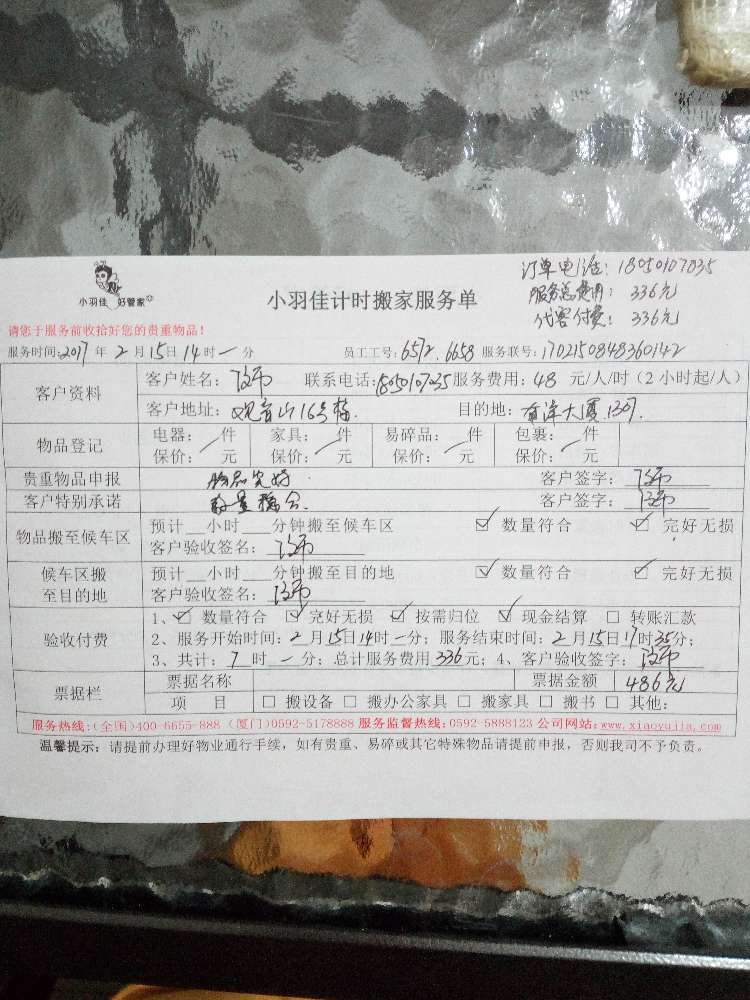 订单电话: 18050107035
服务总费用: 336元
代客付费: 336元
小羽佳 好管家
小羽佳计时搬家服务单
请您于服务前收拾好您的贵重物品!
服务时间:2017年2月15日14时一分 员工工号:6572.6658 服务联号:1702150848360142
客户资料
客户姓名: 联系电话:18050107035 服务费用:48元/人/时(2小时起/人)
客户地址:观音山16号楼 目的地:大厦1307.
物品登记
电器: 件 家具: 件 易碎品: 件 包裹: 件
保价: 元 保价: 元 保价: 元 保价: 元
贵重物品申报 物品完好 客户签字:
客户特别承诺 数量 客户签字:
物品搬至候车区
预计__小时___分钟搬至候车区 ☑ 数量符合 ☑ 完好无损
客户验收签名:
候车区搬至目的地
预计__小时___分钟搬至目的地 ☑ 数量符合 ☑ 完好无损
客户验收签名:
验收付费
1、☑ 数量符合 ☑ 完好无损 ☑ 按需归位 ☑ 现金结算 □ 转账汇款
2、服务开始时间:2月15日14时一分;服务结束时间:2月15日17时35分;
3、共计:7时一分;总计服务费用336元;4、客户验收签字:
票据栏
票据名称 票据金额 486元
项 目 □ 搬设备 □ 搬办公家具 □ 搬家具 □ 搬书 □ 其他:
服务热线:(全国)400-6655-888 (厦门)0592-5178888 服务监督热线:0592-5888123 公司网站:www.xiaoyujia.com
温馨提示:请提前办理好物业通行手续,如有贵重、易碎或其它特殊物品请提前申报,否则我司不予负责。